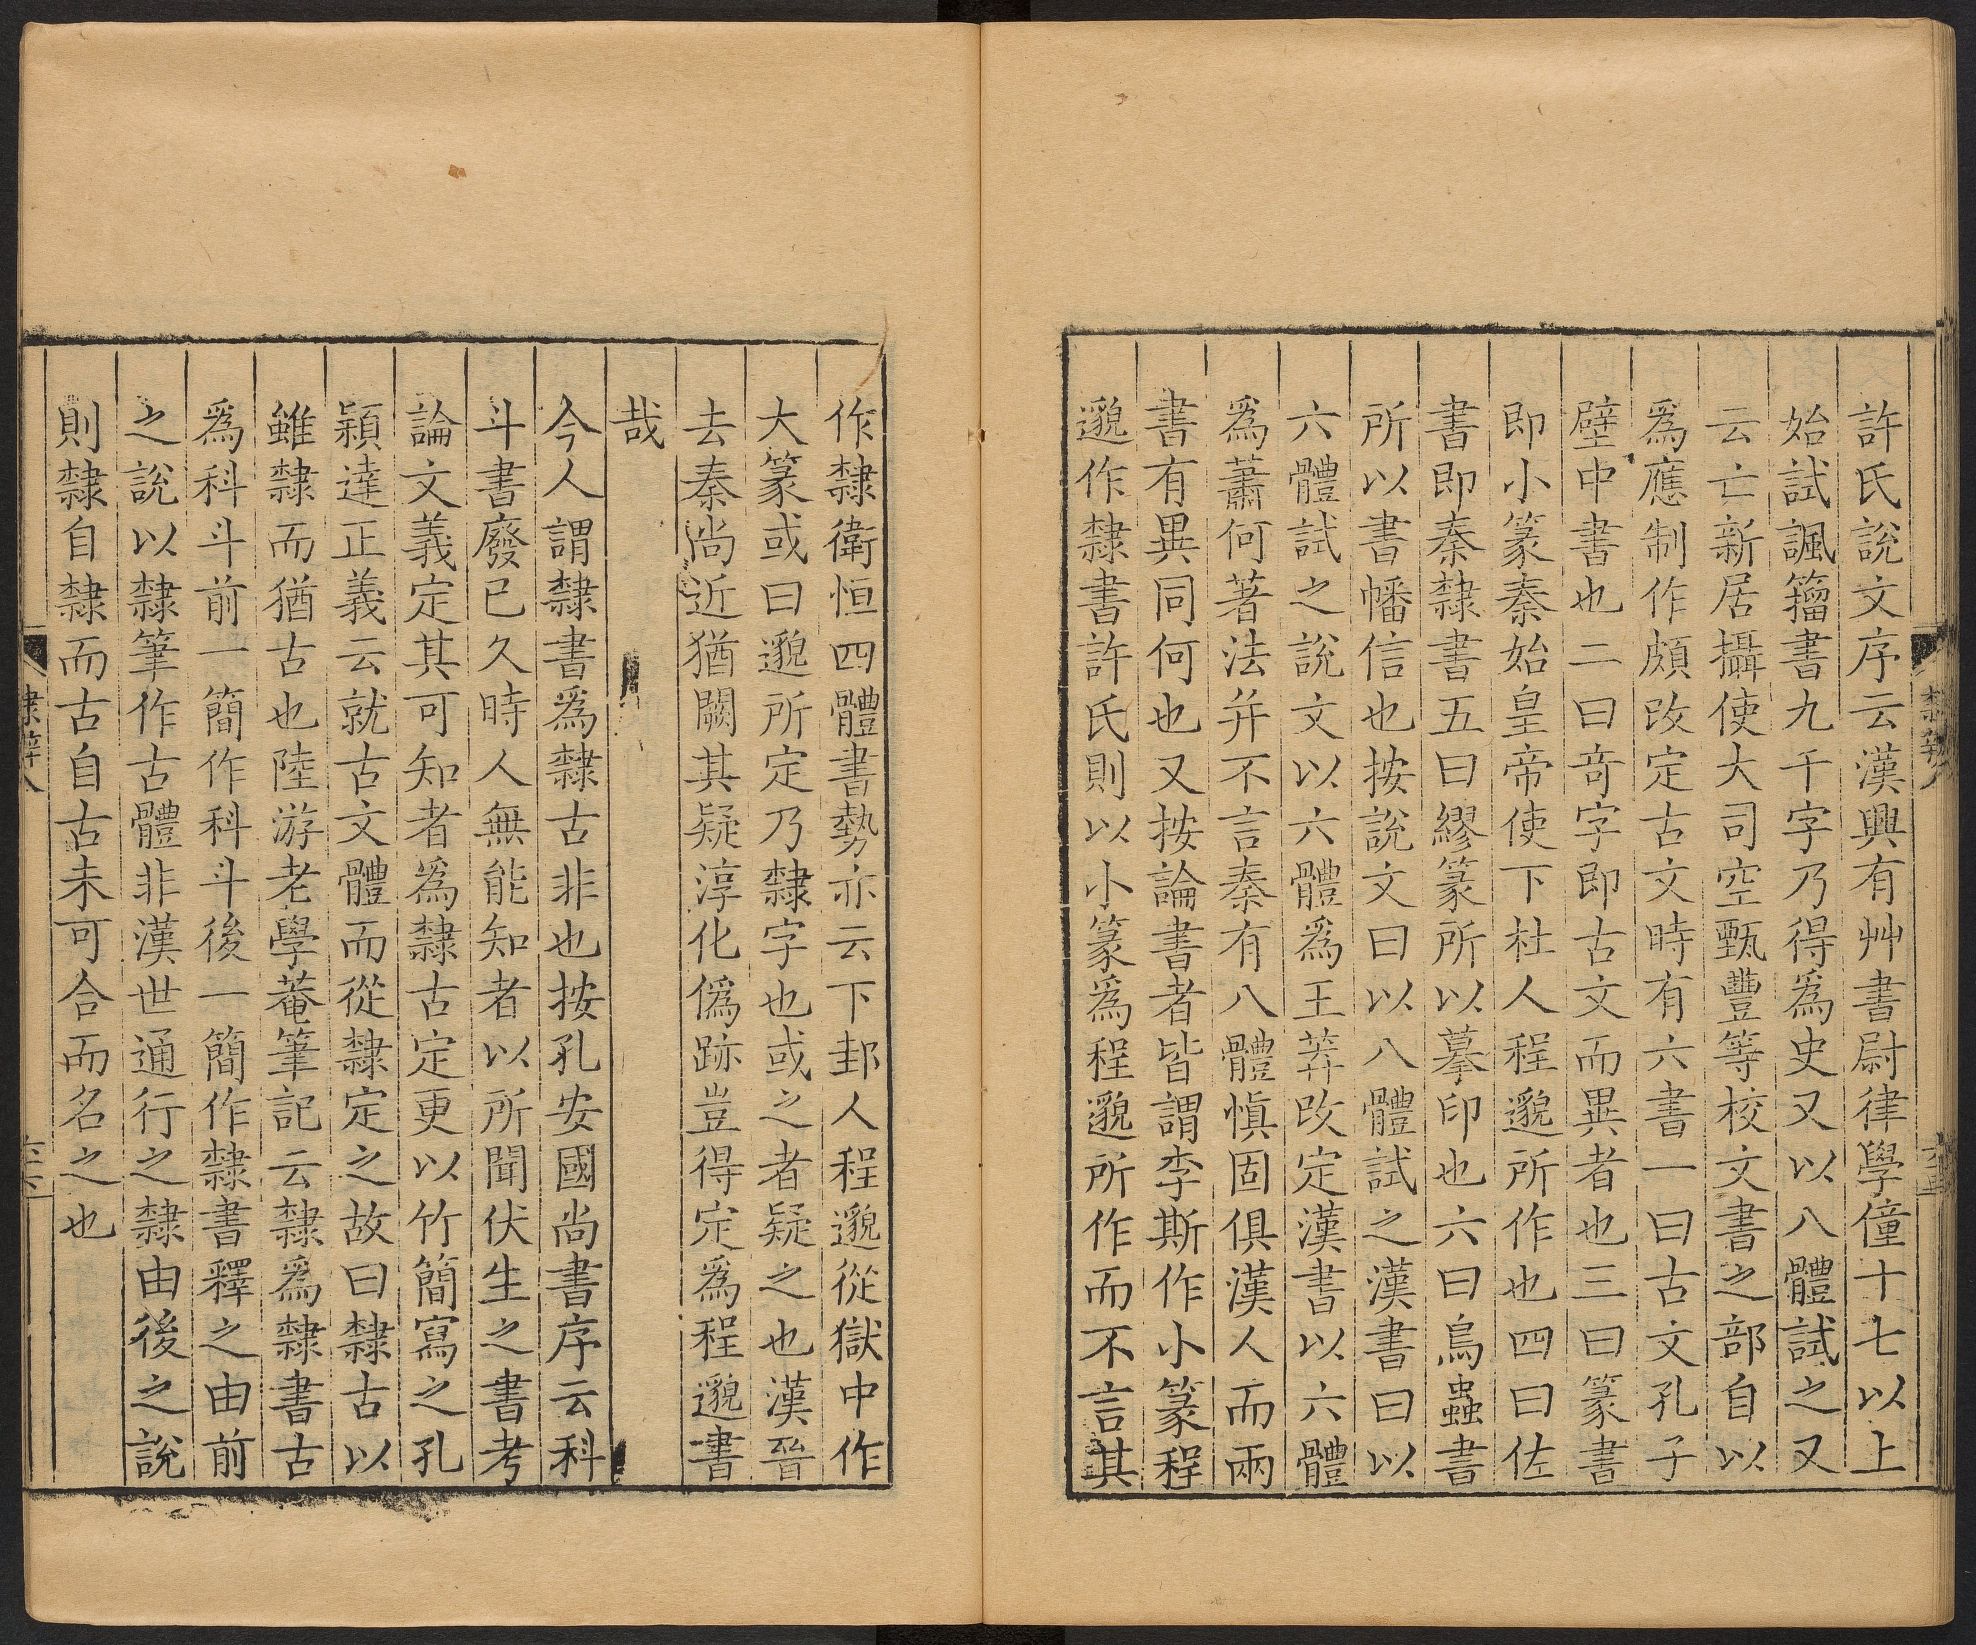 許氏說文序云漢興有艸書尉律學僮十七以上
始試諷籀書九千字乃得爲史又以八體試之又
云亡新居攝使大司空甄豐等校文書之部自以
爲應制作頗改定古文時有六書一曰古文孔子
壁中書也二曰竒字即古文而異者也三曰篆書
即小篆秦始皇帝使下杜人程邈所作也四曰佐
書即秦隸書五曰繆篆所以摹印也六曰鳥蟲書
所以書幡信也按說文曰以八體試之漢書曰以
六體試之說文以六體爲王莽改定漢書以六體
爲蕭何著法并不言秦有八體愼固俱漢人而兩
書有異同何也又按論書者皆謂李斯作小篆程
邈作隸書許氏則以小篆爲程邈所作而不言其
作隸衛恒四體書勢亦云下邽人程邈從獄中作
大篆或曰邈所定乃隸字也或之者疑之也漢晉
去秦尚近猶闕其疑淳化僞跡豈得定爲程邈書
哉
今人謂隸書爲隸古非也按孔安國尚書序云科
斗書廢已久時人無能知者以所聞伏生之書考
論文義定其可知者爲隸古定更以竹簡寫之孔
穎達正義云就古文體而從隸定之故曰隸古以
雖隸而猶古也陸游老學菴筆記云隸爲隸書古
爲科斗前一簡作科斗後一簡作隸書釋之由前
之說以隸筆作古體非漢世通行之隸由後之說
則隸自隸而古自古未可合而名之也
隸辨八